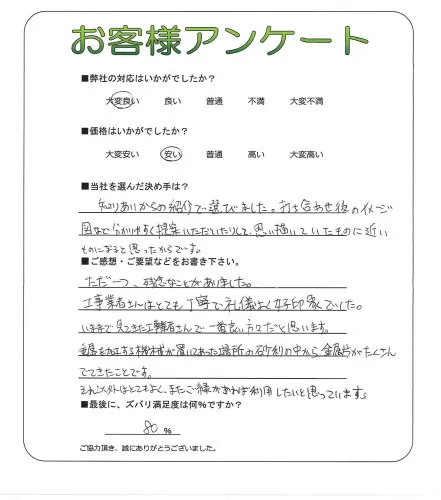 お客様アンケート
■弊社の対応はいかがでしたか？
大変良い 良い 普通 不満 大変不満
■価格はいかがでしたか？
大変安い 安い 普通 高い 大変高い
■当社を選んだ決め手は？
知りあいからの紹介で選びました。打ち合わせ後のイメージ
図など分かりやすく提案いただいたりして、思い描いていたものに近い
ものになると思ったからです。
■ご感想・ご要望などをお書き下さい。
ただ一つ、残念なことがありました。
工事業者さんはとても丁寧で礼儀よく好印象でした。
いままで見てきた工事業者さんで一番良い方々だと思います。
金属を加工する機械が置いてあった場所の砂利の中から金属片がたくさん
でてきたことです。
それ以外はとてもよく、またご縁があれば利用したいと思っています。
■最後に、ズバリ満足度は何%ですか？
80 %
ご協力頂き、誠にありがとうございました。